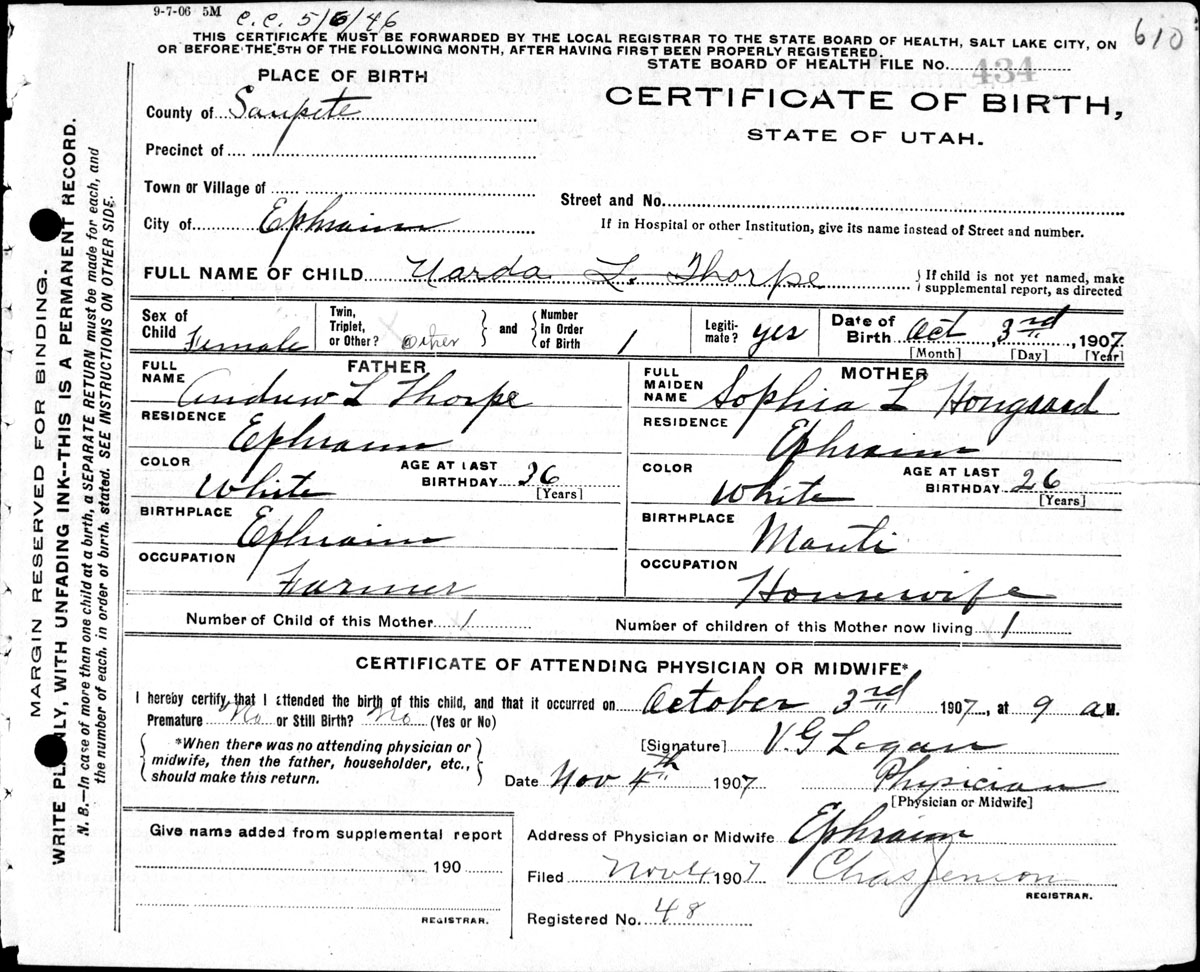 9-7-06 5M c.c. 5/6/46
610
THIS CERTIFICATE MUST BE FORWARDED BY THE LOCAL REGISTRAR TO THE STATE BOARD OF HEALTH, SALT LAKE CITY, ON
OR BEFORE THE 5TH OF THE FOLLOWING MONTH, AFTER HAVING FIRST BEEN PROPERLY REGISTERED.
STATE BOARD OF HEALTH FILE No. 434
PLACE OF BIRTH
CERTIFICATE OF BIRTH,
STATE OF UTAH.
County of Sanpete
Precinct of
Town or Village of
Street and No.
City of Ephraim
If in Hospital or other Institution, give its name instead of Street and number.
FULL NAME OF CHILD Narda L. Thorpe
If child is not yet named, make
supplemental report, as directed
Sex of Child Female
Twin, Triplet, or Other? other
and
Number In Order of Birth 1
Legiti-mate? yes
Date of Birth Oct 3rd, 1907
[Month] [Day] [Year]
FATHER
FULL NAME Andrew L Thorpe
RESIDENCE Ephraim
COLOR White
AGE AT LAST BIRTHDAY 26
[Years]
BIRTHPLACE Ephraim
OCCUPATION Farmer
MOTHER
FULL MAIDEN NAME Sophia L Hougaard
RESIDENCE Ephraim
COLOR White
AGE AT LAST BIRTHDAY 26
[Years]
BIRTHPLACE Manti
OCCUPATION Housewife
Number of Child of this Mother 1
Number of children of this Mother now living 1
CERTIFICATE OF ATTENDING PHYSICIAN OR MIDWIFE*
I hereby certify that I attended the birth of this child, and that it occurred on October 3rd 1907, at 9 a M.
Premature No or Still Birth? No (Yes or No)
*When there was no attending physician or
midwife, then the father, householder, etc.,
should make this return.
[Signature] V. G Logan
Date Nov 4th 1907
Physician
[Physician or Midwife]
Give name added from supplemental report
190
REGISTRAR.
Address of Physician or Midwife Ephraim
Filed Nov 4, 1907 Chas Jenson
REGISTRAR.
Registered No. 48
MARGIN RESERVED FOR BINDING.
WRITE PLAINLY, WITH UNFADING INK--THIS IS A PERMANENT RECORD.
N. B.—In case of more than one child at a birth, a SEPARATE RETURN must be made for each, and
the number of each. in order of birth. stated. SEE INSTRUCTIONS ON OTHER SIDE.